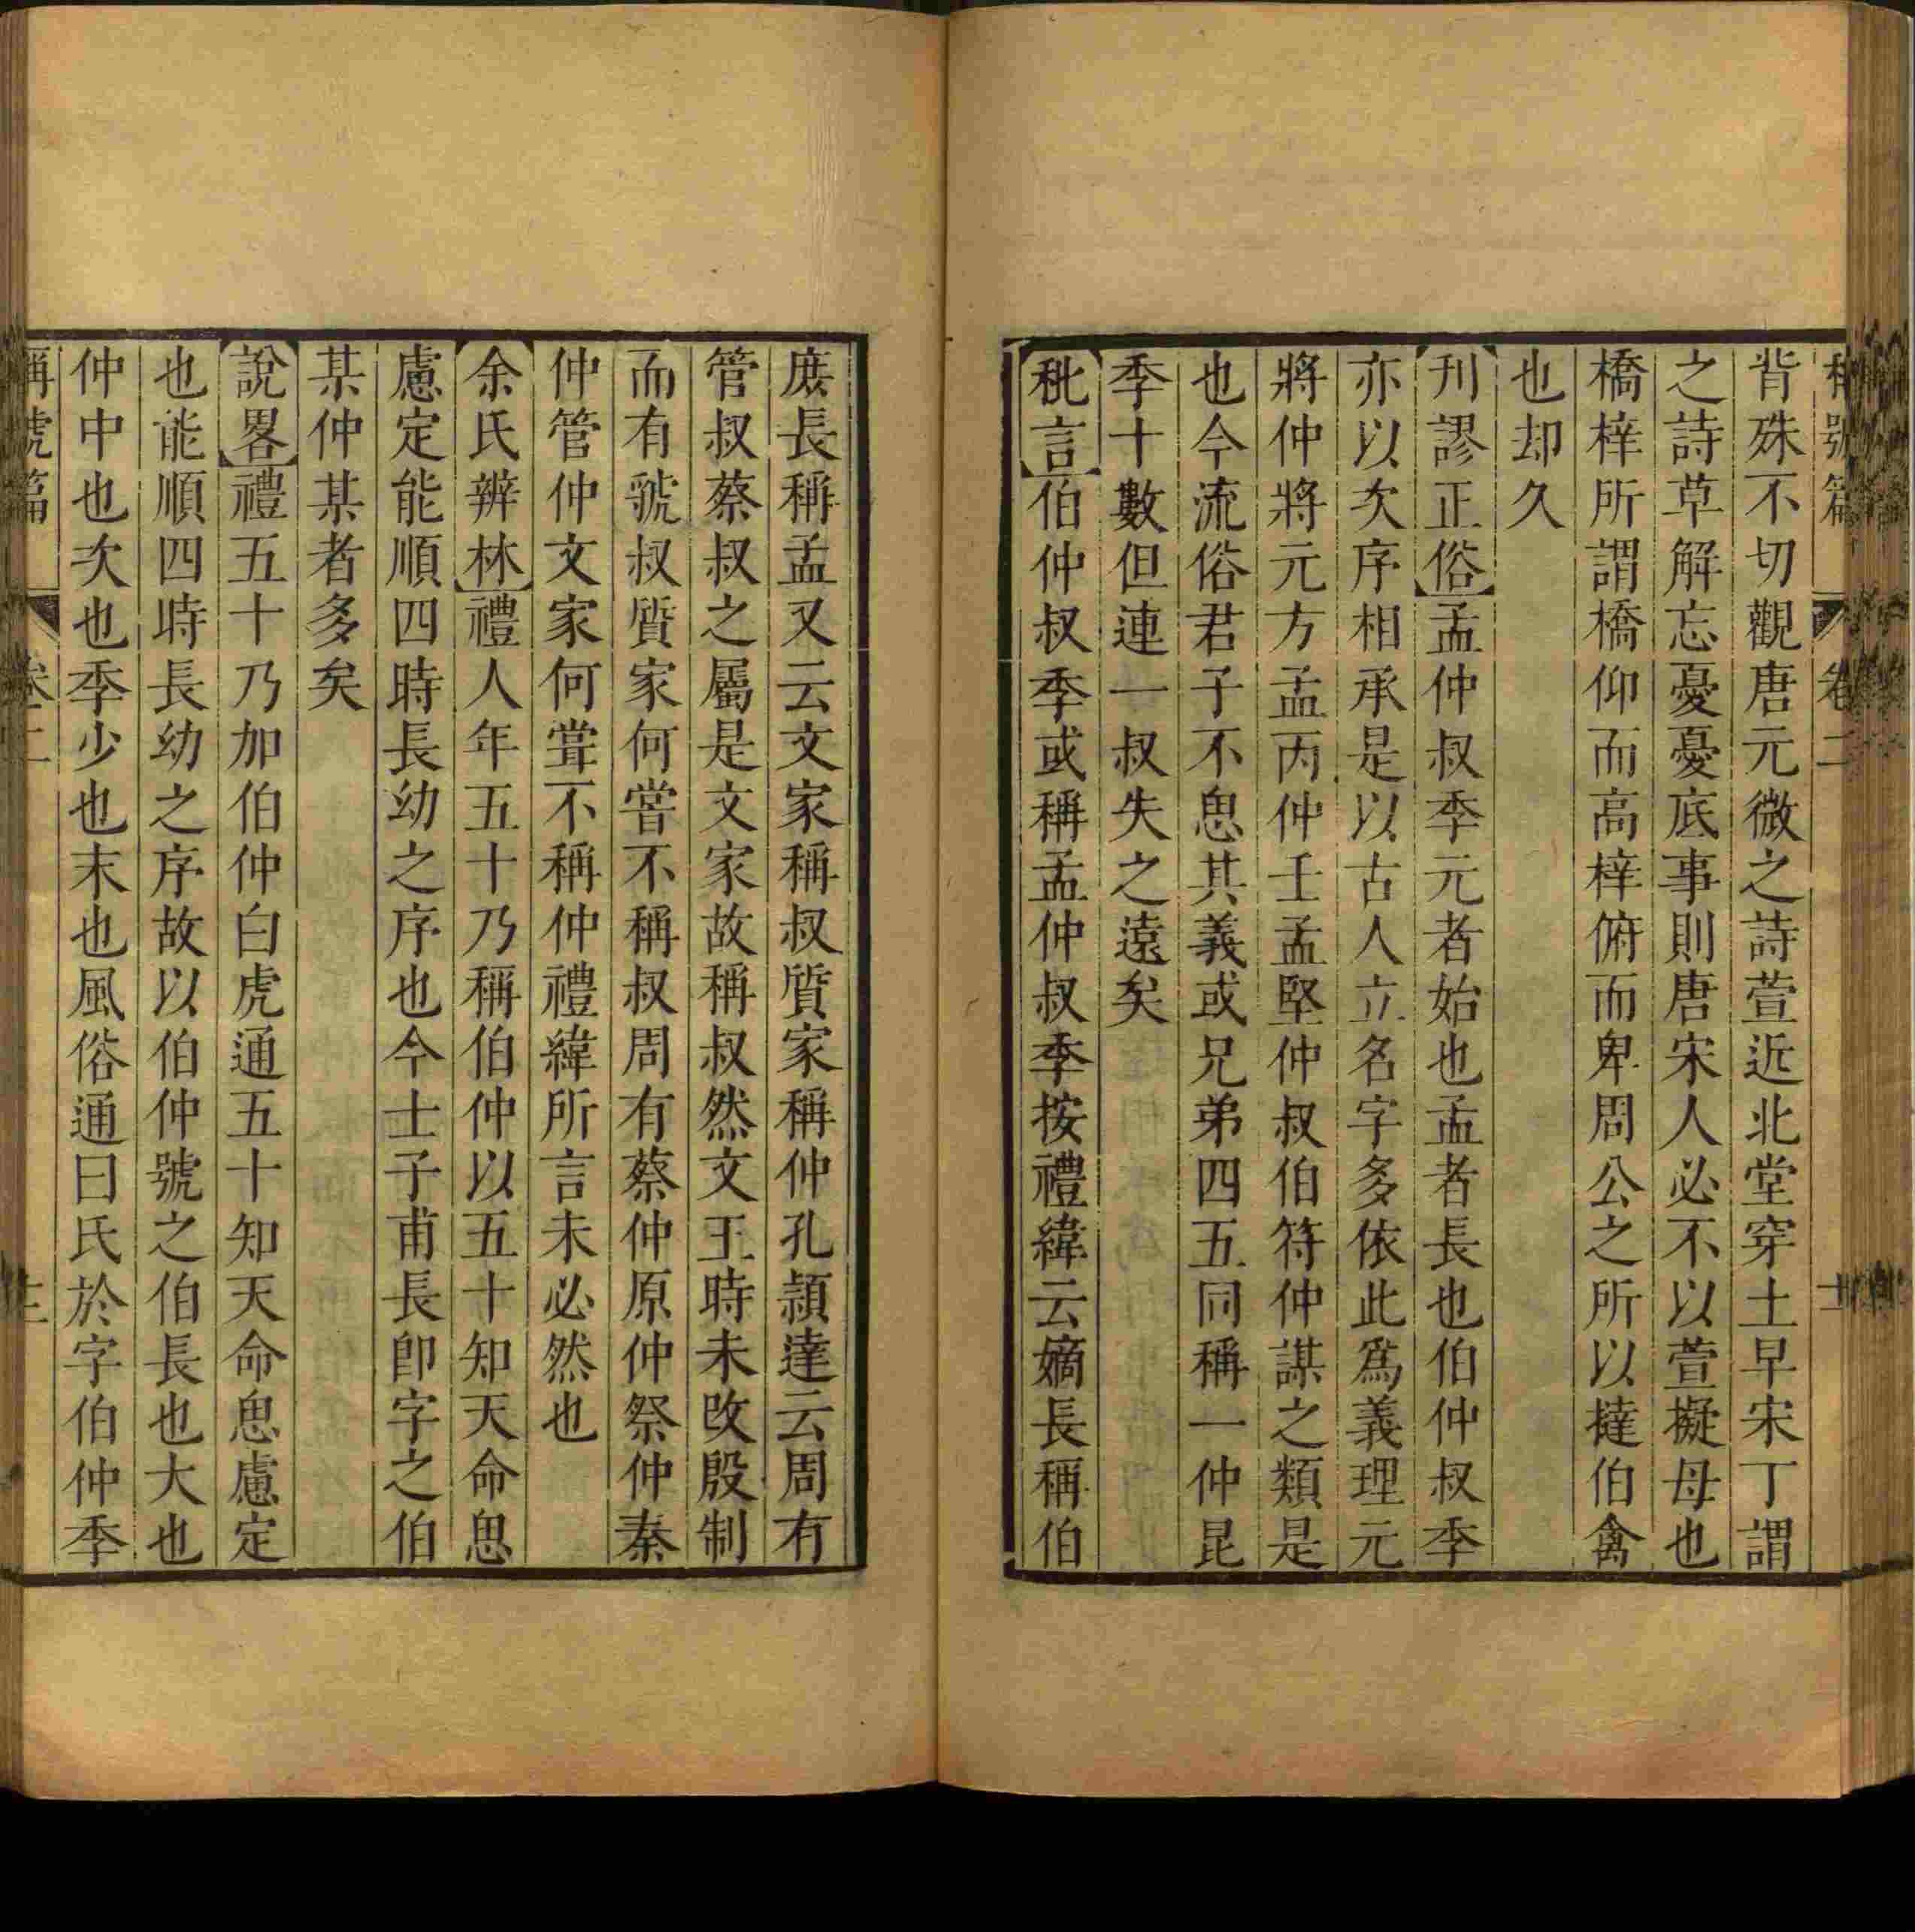 稱號篇 卷二 十二
背殊不切觀唐元微之詩萱近北堂穿土早宋丁謂
之詩草解忘憂憂底事則唐宋人必不以萱擬母也
橋梓所謂橋仰而高梓俯而卑周公之所以撻伯禽
也却久
刋謬正俗孟仲叔季元者始也孟者長也伯仲叔季
亦以次序相承是以古人立名字多依此爲義理元
將仲將元方孟丙仲壬孟堅仲叔伯符仲謀之類是
也今流俗君子不思其義或兄弟四五同稱一仲昆
季十數但連一叔失之遠矣
秕言伯仲叔季或稱孟仲叔季按禮緯云嫡長稱伯
庶長稱孟又云文家稱叔質家稱仲孔頴達云周有
管叔蔡叔之屬是文家故稱叔然文王時未改殷制
而有虢叔質家何嘗不稱叔周有蔡仲原仲祭仲秦
仲管仲文家何甞不稱仲禮緯所言未必然也
余氏辨林禮人年五十乃稱伯仲以五十知天命思
慮定能順四時長幼之序也今士子甫長卽字之伯
某仲某者多矣
說畧禮五十乃加伯仲白虎通五十知天命思慮定
也能順四時長幼之序故以伯仲號之伯長也大也
仲中也次也季少也末也風俗通曰氏於字伯仲季
稱號篇 卷二